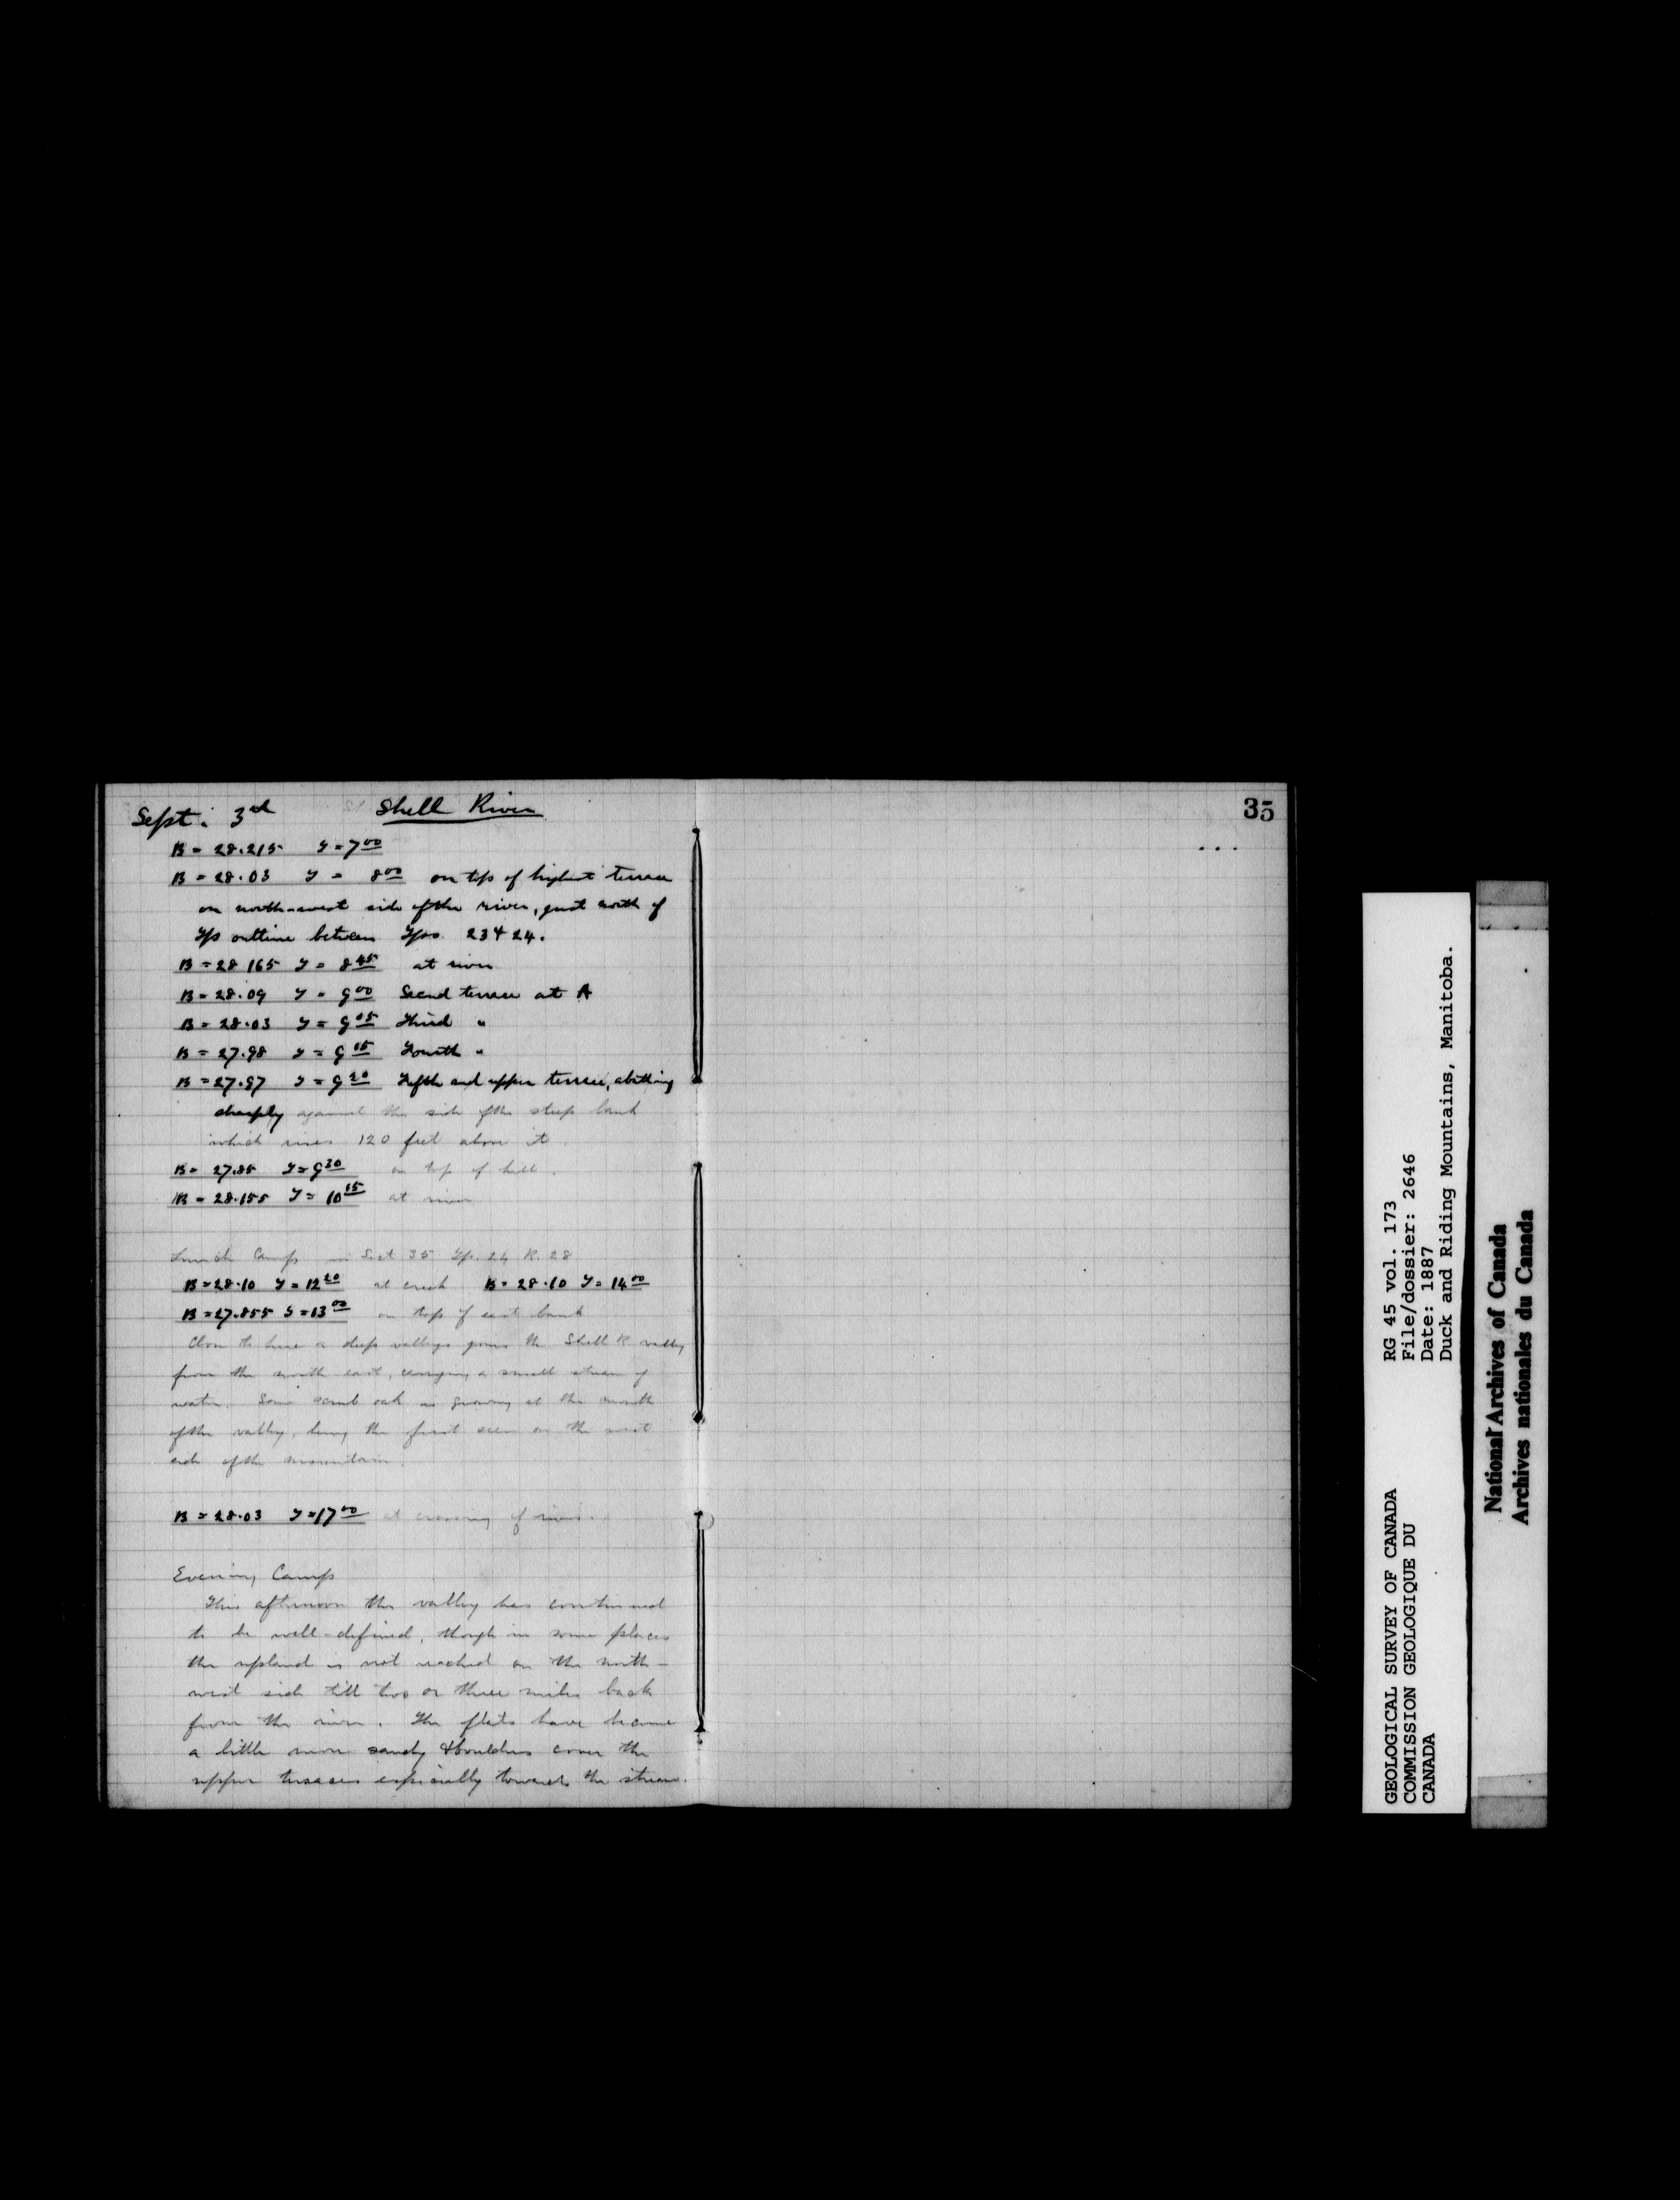 Sept. 3rd Shell River
B = 28.215 T = 7 00
B = 28.03 T = 8 00 on top of highest terrace
on north-west side of the river, just north of
Tp outline between Tps. 23 & 24.
B = 28 165 T = 8 45 at river
B = 28.09 T = 9 00 Second terrace at A
B = 28.03 T = 9 05 Third "
B = 27.98 T = 9 15 Fourth "
B = 27.97 T = 9 20 Fifth and upper terrace, abutting
sharply against the side of the steep bank
which rises 120 feet above it.
B = 27.85 T = 9 30 on top of hill.
B = 28.155 T = 10 15 at river
Lunch Camp in Sect 35 Tp. 24 R. 28
B = 28.10 T = 12 20 at creek B = 28.10 T = 14 00
B = 27.855 T = 13 00 on top of east bank
Close to here a deep valley joins the Shell R valley
from the north east, carrying a small stream of
water. Some scrub oak is growing at the mouth
of the valley, being the first seen on the west
side of the mountain.
B = 28.03 T = 17 00 at crossing of river.
Evening Camp
This afternoon the valley has continued
to be well-defined, though in some places
the upland is not reached on the north-
west side till two or three miles back
from the river. The flats have become
a little more sandy & boulders cover the
upper terraces especially towards the stream.
35
GEOLOGICAL SURVEY OF CANADA RG 45 vol. 173
COMMISSION GEOLOGIQUE DU File/dossier: 2646
CANADA Date: 1887
Duck and Riding Mountains, Manitoba.
National Archives of Canada
Archives nationales du Canada